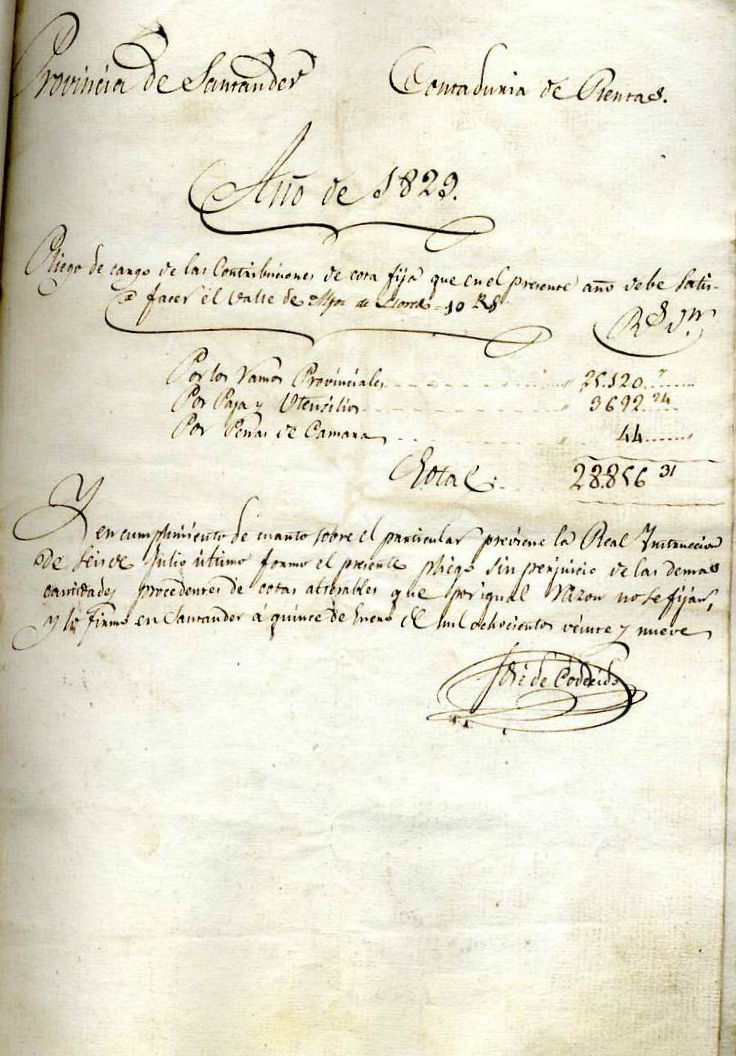 Provincia de Santander Contaduria de Rentas.
Año de 1829.
Pliego de cargo de las Contribuciones de cota fija que en el presente año debe satis-
facer el Valle de
Rs Vn
Por los Ramos Provinciales 25.120
Por Paja y Utensilios 3692 24
Por Penas de Camara 44
Total 28.856 31
Y en cumplimiento de cuanto sobre el particular previene la Real Ynstruccion
de seis de Julio ultimo formo el presente pliego sin perjuicio de las demas
cantidades procedentes de cotas alterables que por igual razon no se fijan,
y lo firmo en Santander á quince de Enero de mil ochocientos veinte y nueve
José de